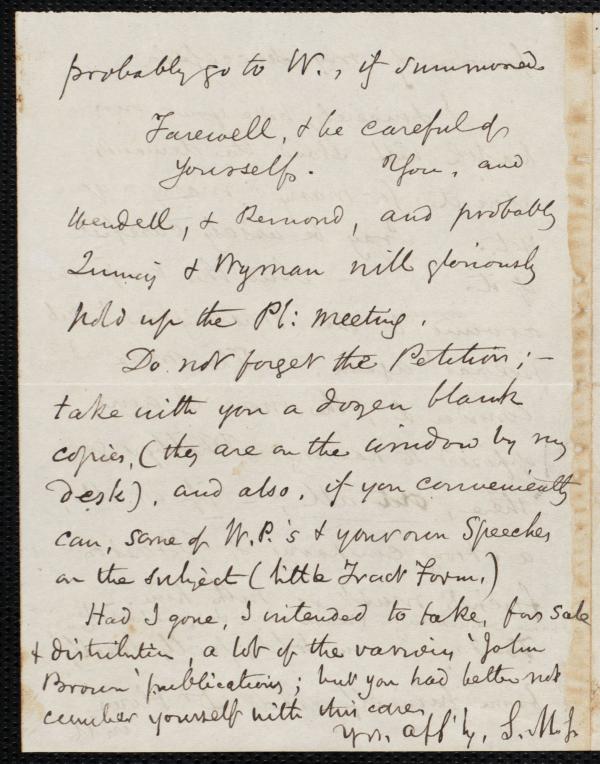 probably go to W., if summoned
Farewell, & be careful of
yourself. You, and
Wendell, & Remond, and probably
Quincy & Wyman will gloriously
hold up the Pl: meeting.
Do not forget the Petition; –
take with you a dozen blank
copies, (they are on the window by my
desk), and also, if you conveniently
can, some of W.P.'s & your own Speeches
on the subject (little Tract Form.)
Had I gone, I intended to take, for sale
& distribution, a lot of the various 'John
Brown' publications; but you had better not
cumber yourself with this care,
Yrs. aff'ly, S. M. Jr